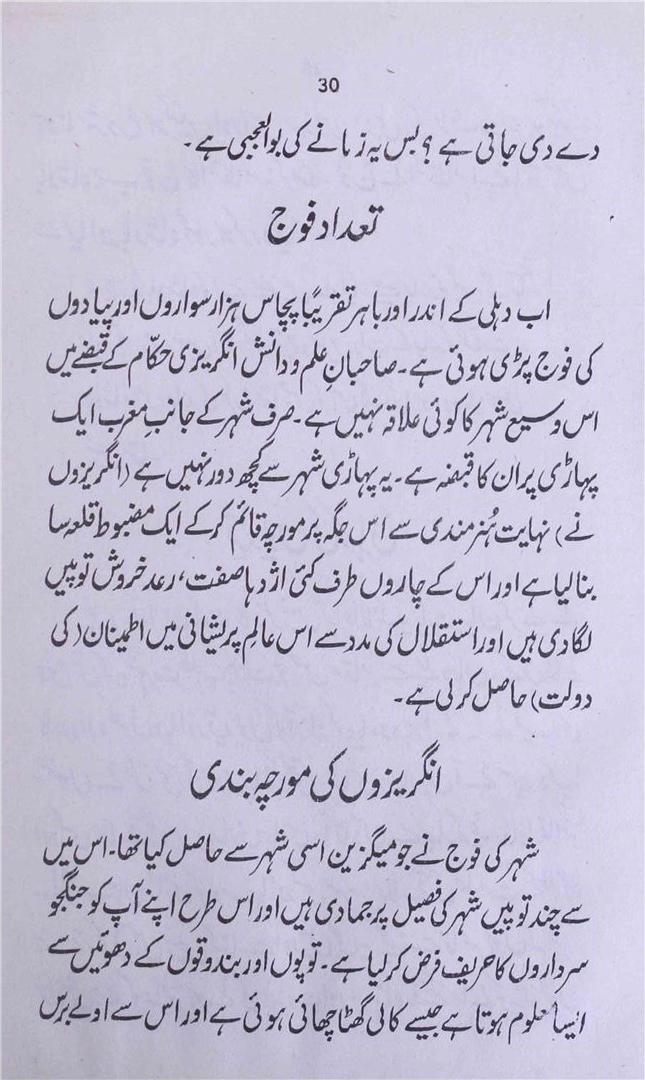 30
دے دی جاتی ہے؟ بس یہ زمانے کی بوالعجبی ہے۔
تعداد فوج
اب دہلی کے اندر اور باہر تقریباً پچاس ہزار سواروں اور پیادوں
کی فوج پڑی ہوئی ہے۔ صاحبانِ علم و دانش انگریزی حکّام کے قبضے میں
اس وسیع شہر کا کوئی علاقہ نہیں ہے۔ صرف شہر کے جانبِ مغرب ایک
پہاڑی پر ان کا قبضہ ہے۔ یہ پہاڑی شہر سے کچھ دور نہیں ہے (انگریزوں
نے) نہایت ہُنرمندی سے اس جگہ پر مورچہ قائم کر کے ایک مضبوط قلعہ سا
بنا لیا ہے اور اس کے چاروں طرف کئی اژدہا صفت، رعد خروش توپیں
لگا دی ہیں اور استقلال کی مدد سے اس عالمِ پریشانی میں اطمینان (کی
دولت) حاصل کر لی ہے۔
انگریزوں کی مورچہ بندی
شہر کی فوج نے جو میگزین اسی شہر سے حاصل کیا تھا۔ اس میں
سے چند توپیں شہر کی فصیل پر جما دی ہیں اور اس طرح اپنے آپ کو جنگجو
سرداروں کا حریف فرض کر لیا ہے۔ توپوں اور بندوقوں کے دھوئیں سے
ایسا معلوم ہوتا ہے جیسے کالی گھٹا چھائی ہوئی ہے اور اس سے اولے برس